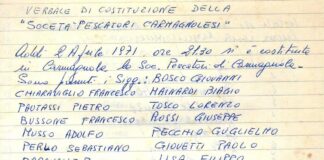 VERBALE DI COSTITUZIONE DELLA
"SOCETÀ PESCATORI CARMAGNOLESI"
Addì 2 Aprile 1971, ore 21,30 si è costituita
in Carmagnola la Soc. Pescatori di Carmagnola.
Sono presenti i Sigg.: BOSCO GIOVANNI
CHIARAVIGLIO FRANCESCO MAINARDI BIAGIO
PAUTASSI PIETRO TOSCO LORENZO
BUSSONE FRANCESCO ROSSI GIUSEPPE
MUSSO ADOLFO PECCHIO GUGLIELMO
PERLO SEBASTIANO GIOVETTI PAOLO
LISA FILIPPO